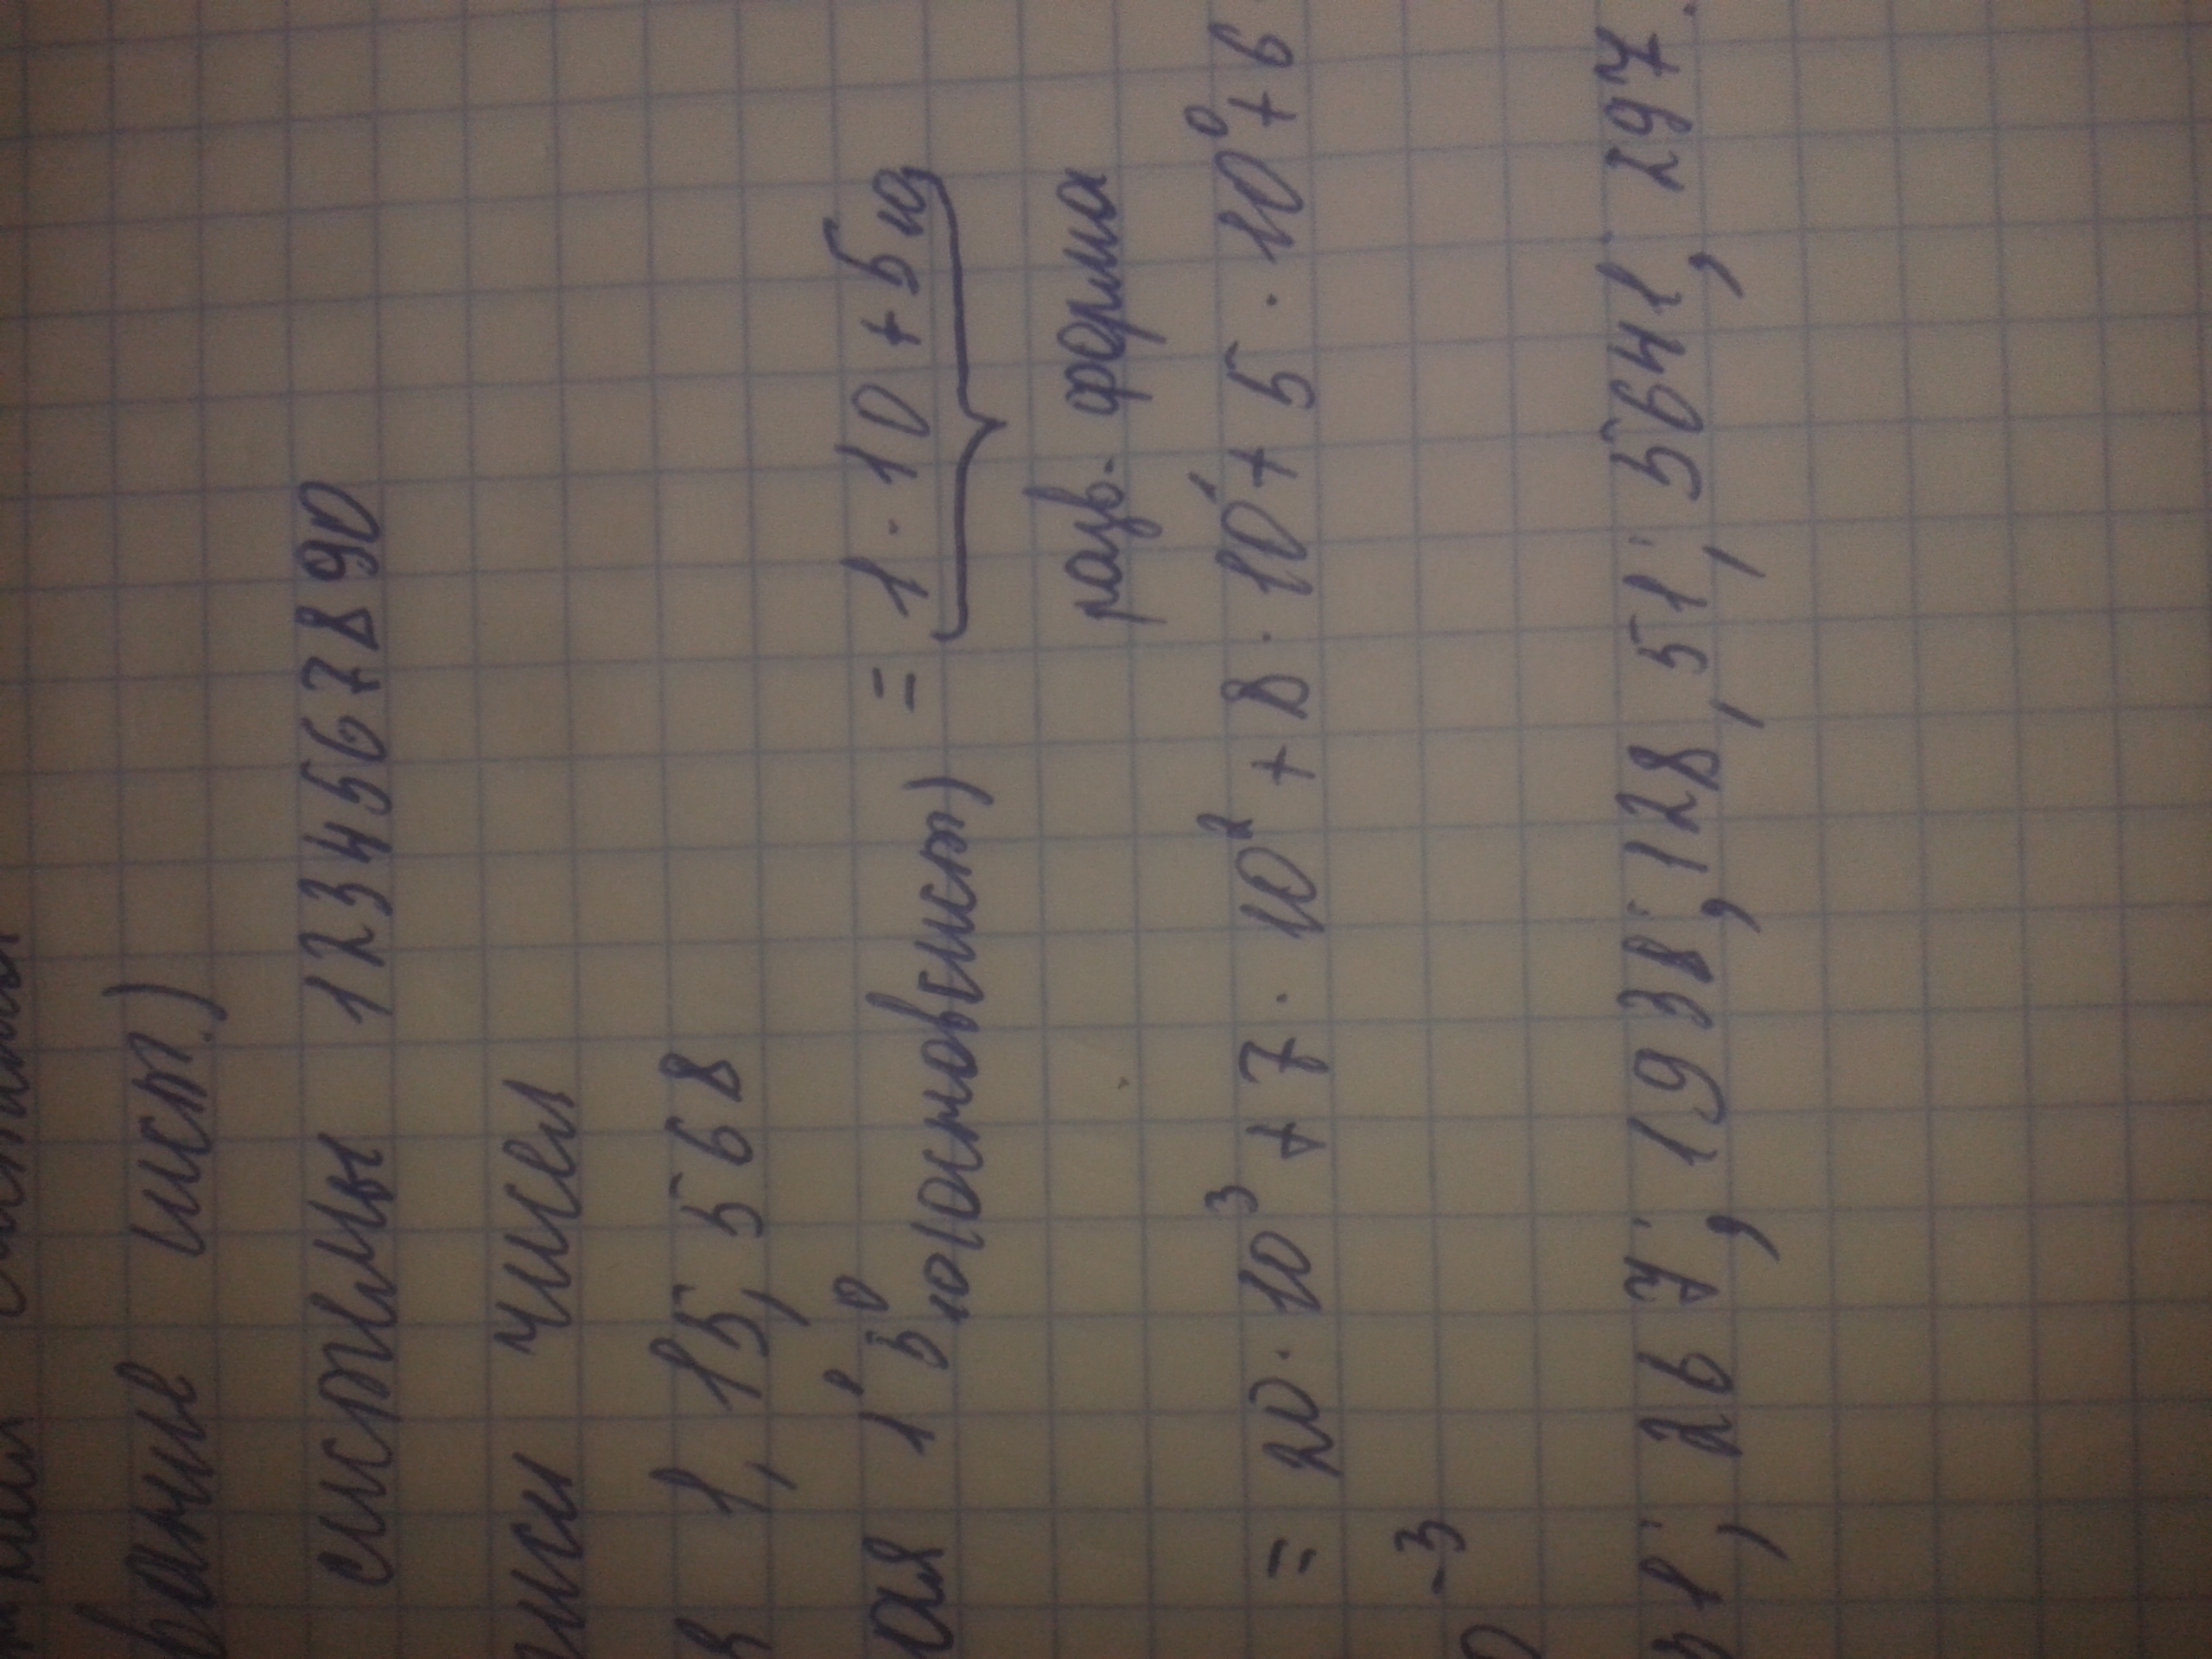 вание сист.)
системы 1234567890
иси чисел
1, 15, 568
ая 1¹5⁰₁₀(основ.сист) = 1 · 10 + 5 ед
разв. форма
= 20 · 10³ + 7 · 10² + 8 · 10¹ + 5 · 10⁰ + 6
-3
31; 267; 1938; 128, 51; 5641; 297.